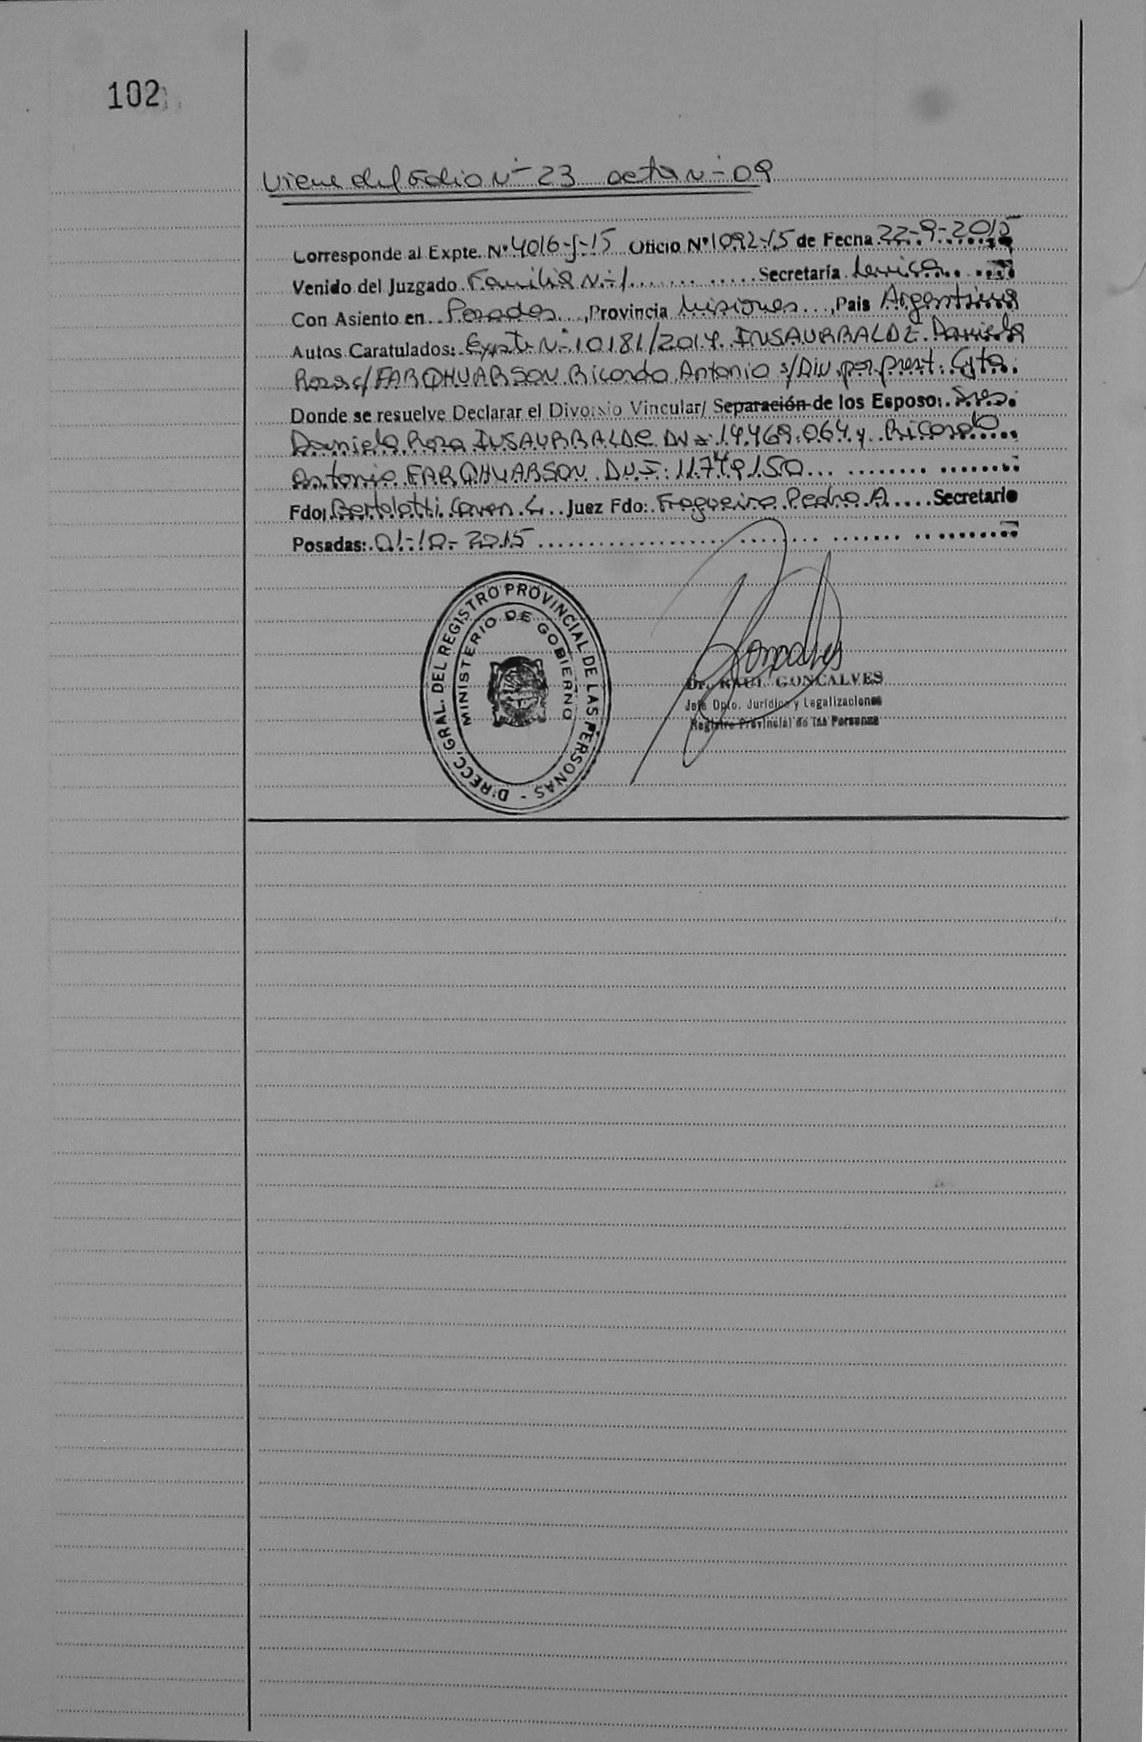 102
Viene del Folio N° 23 acta N° 09
Corresponde al Expte. N° 4016-J-15 Oficio N° 1092-15 de Fecha 22-9-2015
Venido del Juzgado Familia N° 1 Secretaría
Con Asiento en Posadas, Provincia Misiones, Pais Argentina
Autos Caratulados: Expte N° 10181/2014 INSAURRALDE Daniela
Rosa c/ FARQHUARSON Ricardo Antonio s/ Div. por prest. Cjta.
Donde se resuelve Declarar el Divorsio Vincular/ Separación de los Esposo: Sres.
Daniela Rosa INSAURRALDE DNI 14.469.064 y Ricardo
Antonio FARQHUARSON D.N.I: 11.749.150
Fdo: Bertolotti Juez Fdo: Fragueiro Pedro A. Secretario
Posadas: 01-10-2015
DIRECC. GRAL. DEL REGISTRO PROVINCIAL DE LAS PERSONAS -
MINISTERIO DE GOBIERNO
Goncalves
Dr. RAUL GONCALVES
Jefe Dpto. Jurídico y Legalizaciones
Registro Provincial de las Personas